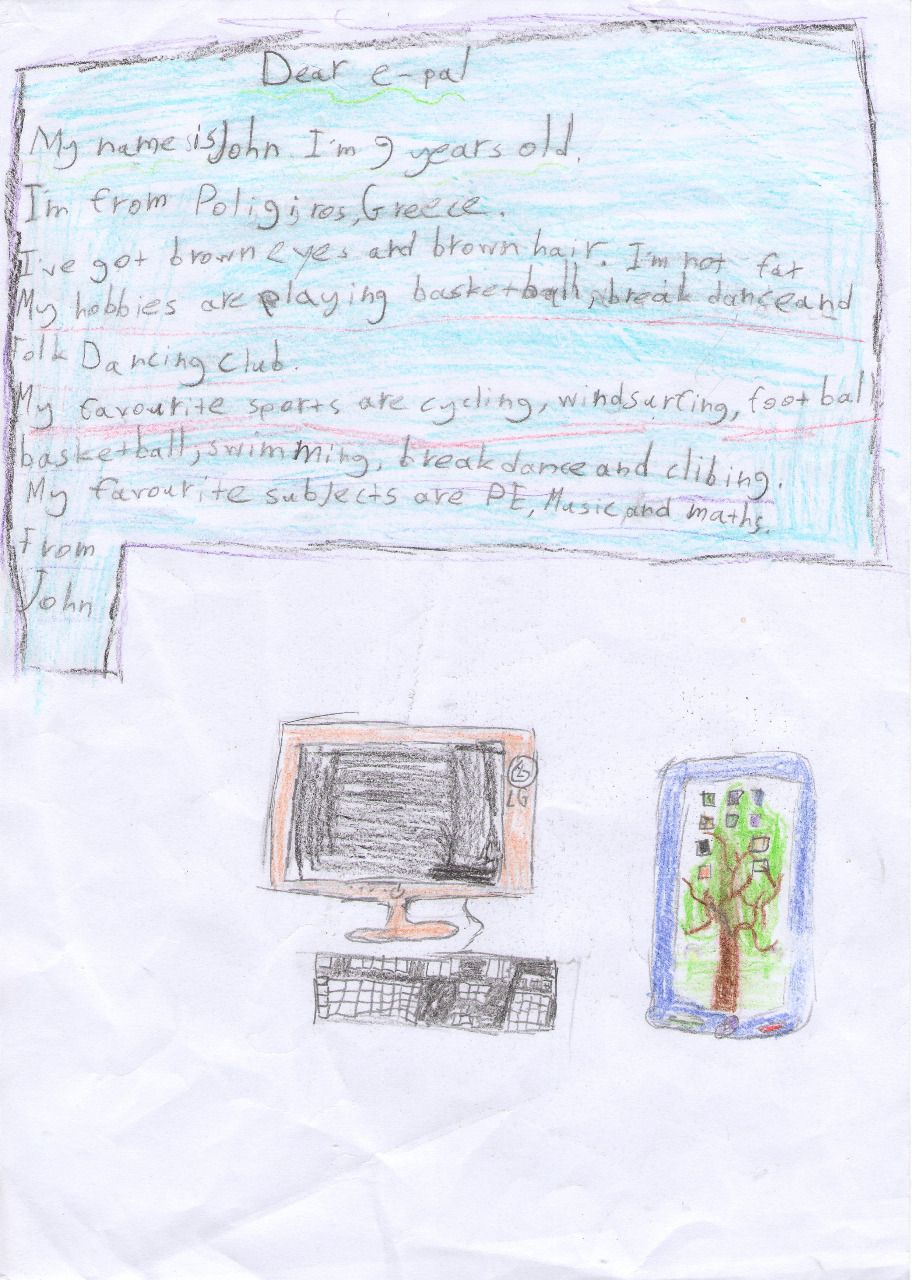 Dear e-pal
My name is John. I'm 9 years old.
I'm from Poligiros, Greece.
I've got brown eyes and brown hair. I'm not fat
My hobbies are playing basketball, break dance and
Folk Dancing club.
My favourite sports are cycling, windsurfing, football
basketball, swimming, break dance and clibing.
My favourite subjects are PE, Music and maths.
From
John
LG